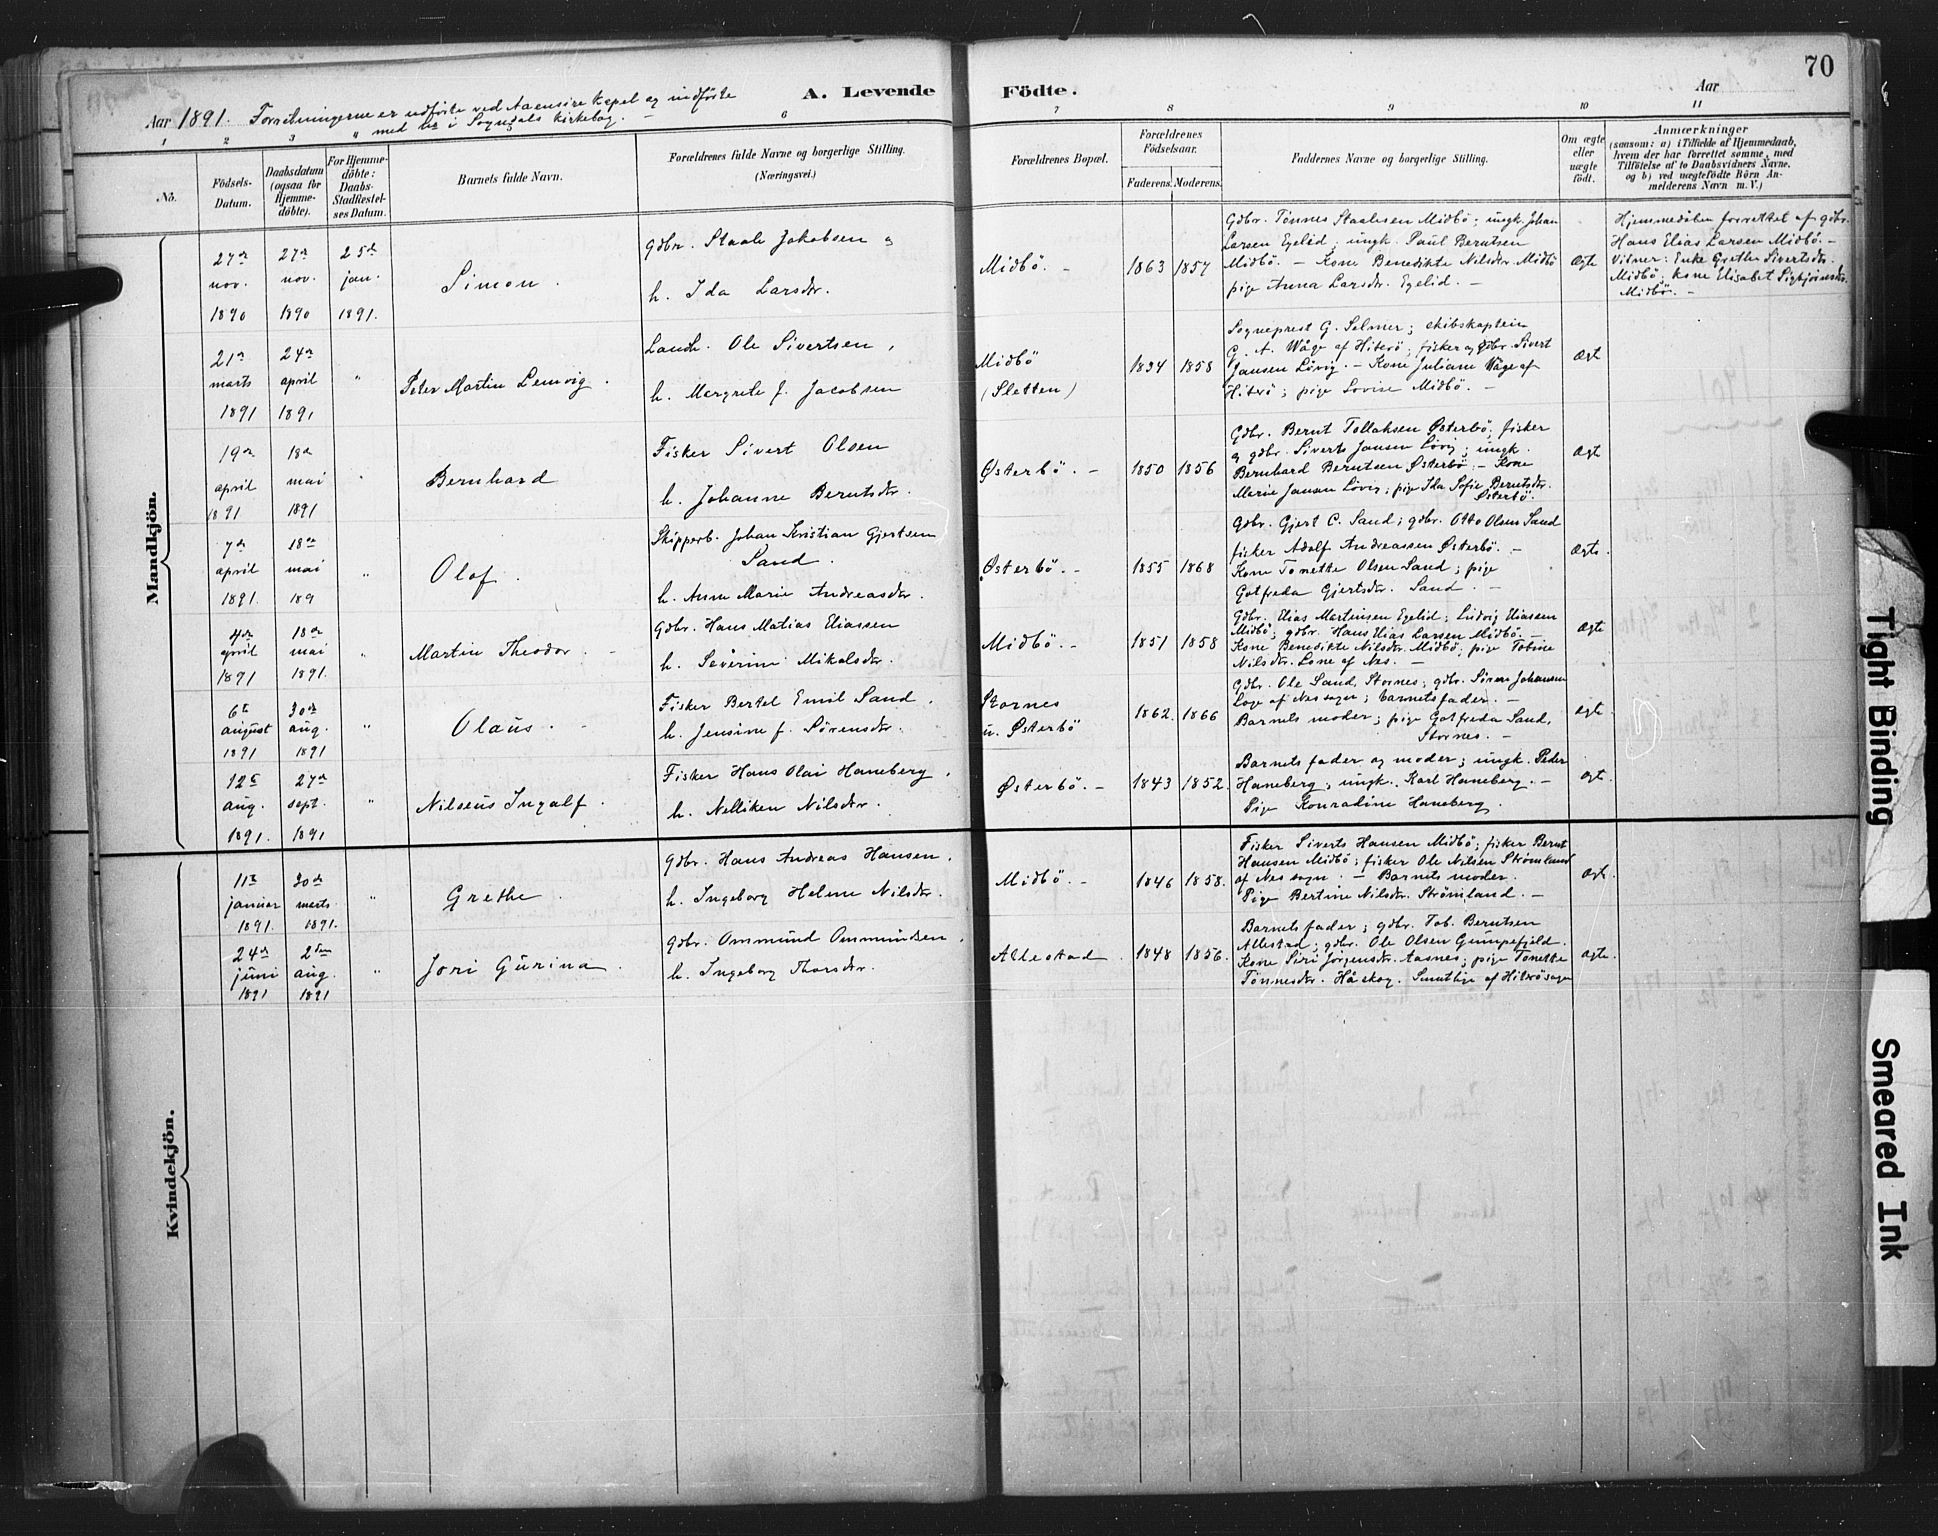 70
A. Levende Födte.
Aar 1891. Forretningerne er udførte ved Aaensire Kapel og indførte
" med nr i Sogndals kirkebog. —
Aar
1 2 3 6 7 8 9 10 11
No.
Födsels-
Datum.
Daabsdatum
(ogsaa for
Hjemme-
döbte).
For Hjemme-
döbte:
Daabs-
Stadfæstel-
ses Datum.
Barnets fulde Navn.
Forældrenes fulde Navne og borgerlige Stilling.
(Næringsvei.)
Forældrenes Bopæl.
Forældrenes
Födselsaar.
Faderens. Moderens.
Faddernes Navne og borgerlige Stilling.
Om ægte
eller
uægte
födt.
Anmærkninger
(saasom: a) i Tilfælde af Hjemmedaab,
hvem der har forrettet samme, med
Tilföielse af to Daabsvidners Navne,
og b) ved uægtefödte Börn An-
melderens Navn m. V.)
Mandkjön.
27de nov. 1890
27de nov. 1890
25de jan. 1891.
Simon.
Gdbr. Staale Jakobsen og
h. Ida Larsdtr.
Midbö. —
1863 1857
Gdbr. Tønnes Staalesen Midbö; ungk. Johan
Larsen Egelid; ungk. Paul Berntsen
Midbö. — Kone Benedikte Nilsdtr. Midbö
pige Anna Larsdtr. Egelid. —
Ægte
Hjemmedåben forrettet af gdbr.
Hans Elias Larsen Midbö. —
Vitner: Enke Grethe Sivertsdtr.
Midbö, kone Elisabet Sigbjörnsdtr.
Midbö. —
21de marts 1891
24de april 1891
"
Peter Martin Lemvig.
Landh. Ole Sivertsen,
h. Margrete J. Jacobsen
Midbö
(Sletten)
1834 1858
Sogneprest G. Selmer; skibskaptein
G. A. Wåge af Hiterö; fisker og gdbr. Sivert
Jansen Lövig. — Kone Juliane Wåge af
Hiterö; pige Lovise Midbö. —
Ægte
19de april 1891
18de mai 1891
"
Bernhard
Fisker Sivert Olsen
h. Johanne Berntsdtr.
Østerbö. —
1850 1856
Gdbr. Bernt Tollaksen Østerbö; fisker
og gdbr. Siverts Jansen Lövig; ungk.
Bernhard Berntsen Østerbö. — Kone
Marie Jansen Lövig; pige Ida Sofie Berntsdtr.
Østerbö.
Ægte
7de april 1891.
18de mai 189
"
Olof.
Skipperb. Johan Kristian Gjertsen
Sand.
h. Anne Marie Andreasdtr.
Østerbö. —
1855 1868
Gdbr. Gjert C. Sand; gdbr. Otto Olsen Sand
fisker Adolf Andreassen Østerbö. —
Kone Tonette Olsen Sand; pige
Gotfreda Gjertsdtr. Sand. —
Ægte.
4de april 1891
18de mai 1891.
"
Martin Theodor. —
Gdbr. Hans Matias Eliassen
h. Severine Mikalsdtr.
Midbö. —
1851 1858
Gdbr. Elias Martinsen Egelid; Ludvig Eliasen
Midbö; gdbr. Hans Elias Larsen Midbö. —
Kone Benedikte Nilsdtr. Midbö; pige Tobine
Nilsdtr. Lone af Nes. —
Ægte
6te august 1891
30de aug. 1891
"
Olaus. —
Fisker Bertel Emil Sand,
h. Jensine f. Sörensdtr.
Stornes
u. Østerbö
1862. 1866
Gdbr. Ole Sand, Stornes; gdbr. Sören Johansen
Loge af Nes sogn; barnets fader. —
Barnets moder; pige Gotfreda Sand,
Stornes. —
ægte.
12te aug. 1891.
27de sept. 1891
"
Nilseus Ingolf.
Fisker Hans Olai Haneberg,
h. Nelliken Nilsdtr.
Østerbö. —
1843 1852.
Barnets fader og moder; ungk. Peder
Haneberg; ungk. Karl Haneberg. —
Pige Konradine Haneberg.
ægt.
Kvindekjön.
11te januar 1891.
30de marts 1891.
"
Grethe.
Gdbr. Hans Andreas Hansen,
h. Ingeborg Helene Nilsdtr.
Midbö. —
1846 1858.
Fisker Siverts Hansen Midbö; fisker Bernt
Hansen Midbö; fisker Ole Nilsen Strömland
af Nes sogn. — Barnets moder.
Pige Bertine Nilsdtr. Strömland. —
Ægt.
24de juni 1891
2den aug. 1891
"
Jori Gurina.
Gdbr. Ommund Ommundsen,
h. Ingeborg Thorsdtr.
Allestad.
1848 1856.
Barnets fader; gdbr. Tob. Berntsen
Allestad; gdbr. Ole Olsen Gumpefjeld.
Kone Siri Jörgensdtr. Aasnes; pige Tonette
Tönnesdtr. Håskog. Samtlige af Hiterö sogn
ægte.
Tight Binding
Smeared Ink